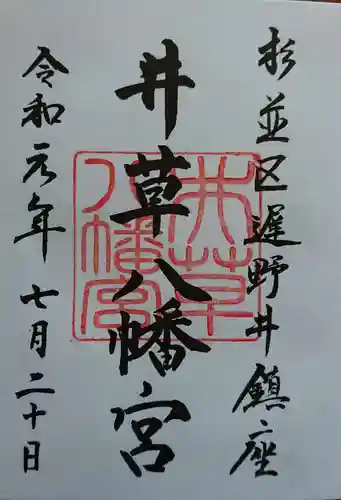 杉並区遅野井鎮座
井草八幡宮
井草八幡宮
令和元年七月二十日